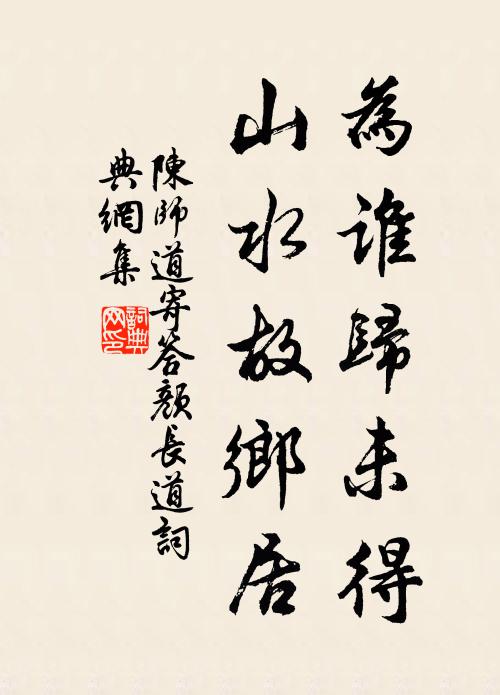 為誰歸未得
山水故鄉居
陳師道寄答顏長道詞
典網集
詞典网印